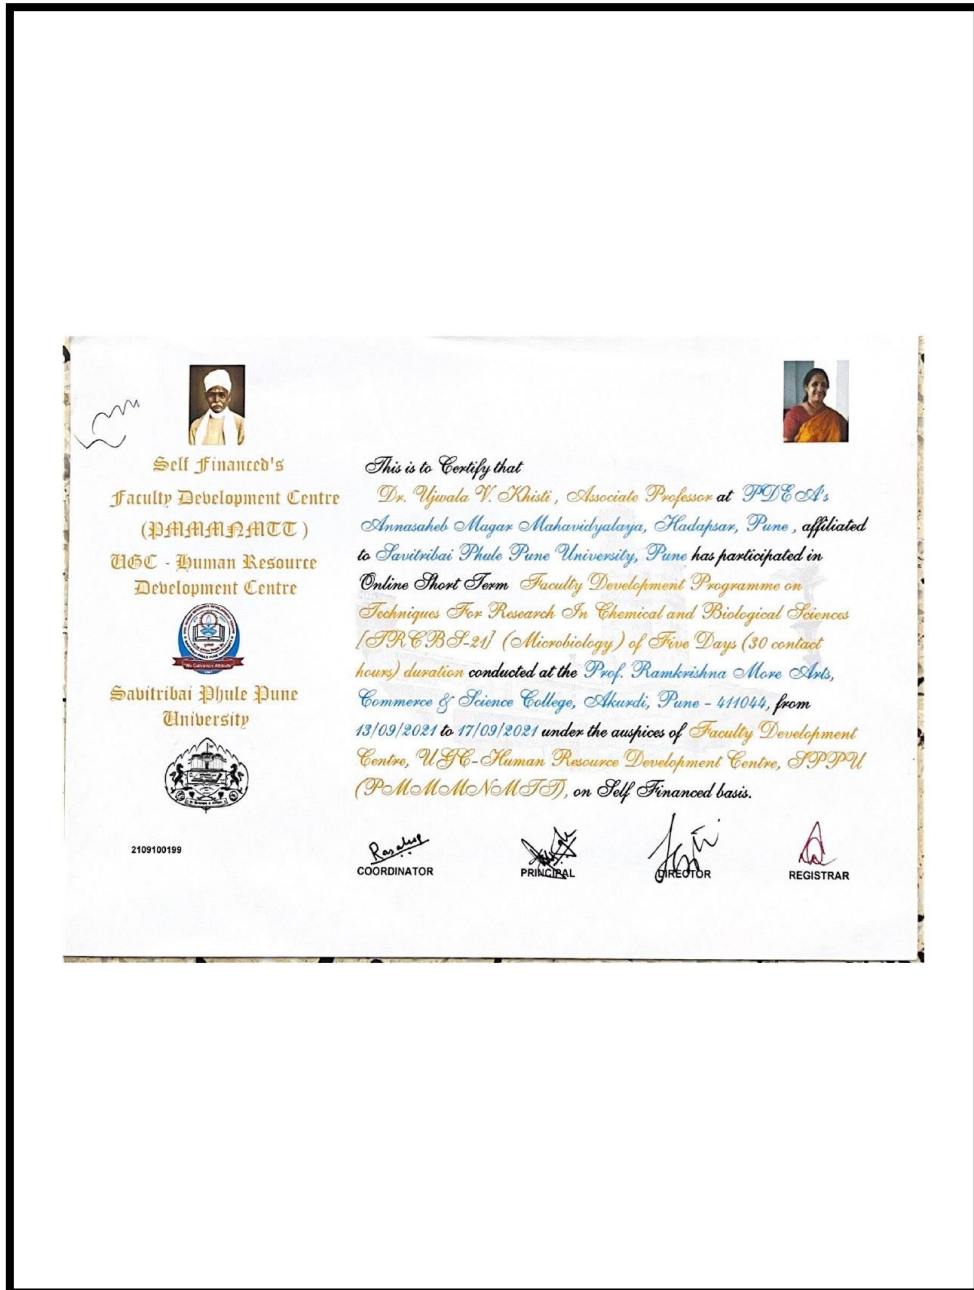 Self Financed's
Faculty Development Centre
(PMMMNMTT)
UGC - Human Resource
Development Centre
Savitribai Phule Pune
University
2109100199
This is to Certify that
Dr. Ujwala V. Khisti, Associate Professor at PDEA's
Annasaheb Magar Mahavidyalaya, Hadapsar, Pune, affiliated
to Savitribai Phule Pune University, Pune has participated in
Online Short Term Faculty Development Programme on
Techniques For Research In Chemical and Biological Sciences
[TRCBS-21] (Microbiology) of Five Days (30 contact
hours) duration conducted at the Prof. Ramkrishna More Arts,
Commerce & Science College, Akurdi, Pune - 411044, from
13/09/2021 to 17/09/2021 under the auspices of Faculty Development
Centre, UGC-Human Resource Development Centre, SPPU
(PMMMNMTT), on Self Financed basis.
COORDINATOR
PRINCIPAL
DIRECTOR
REGISTRAR